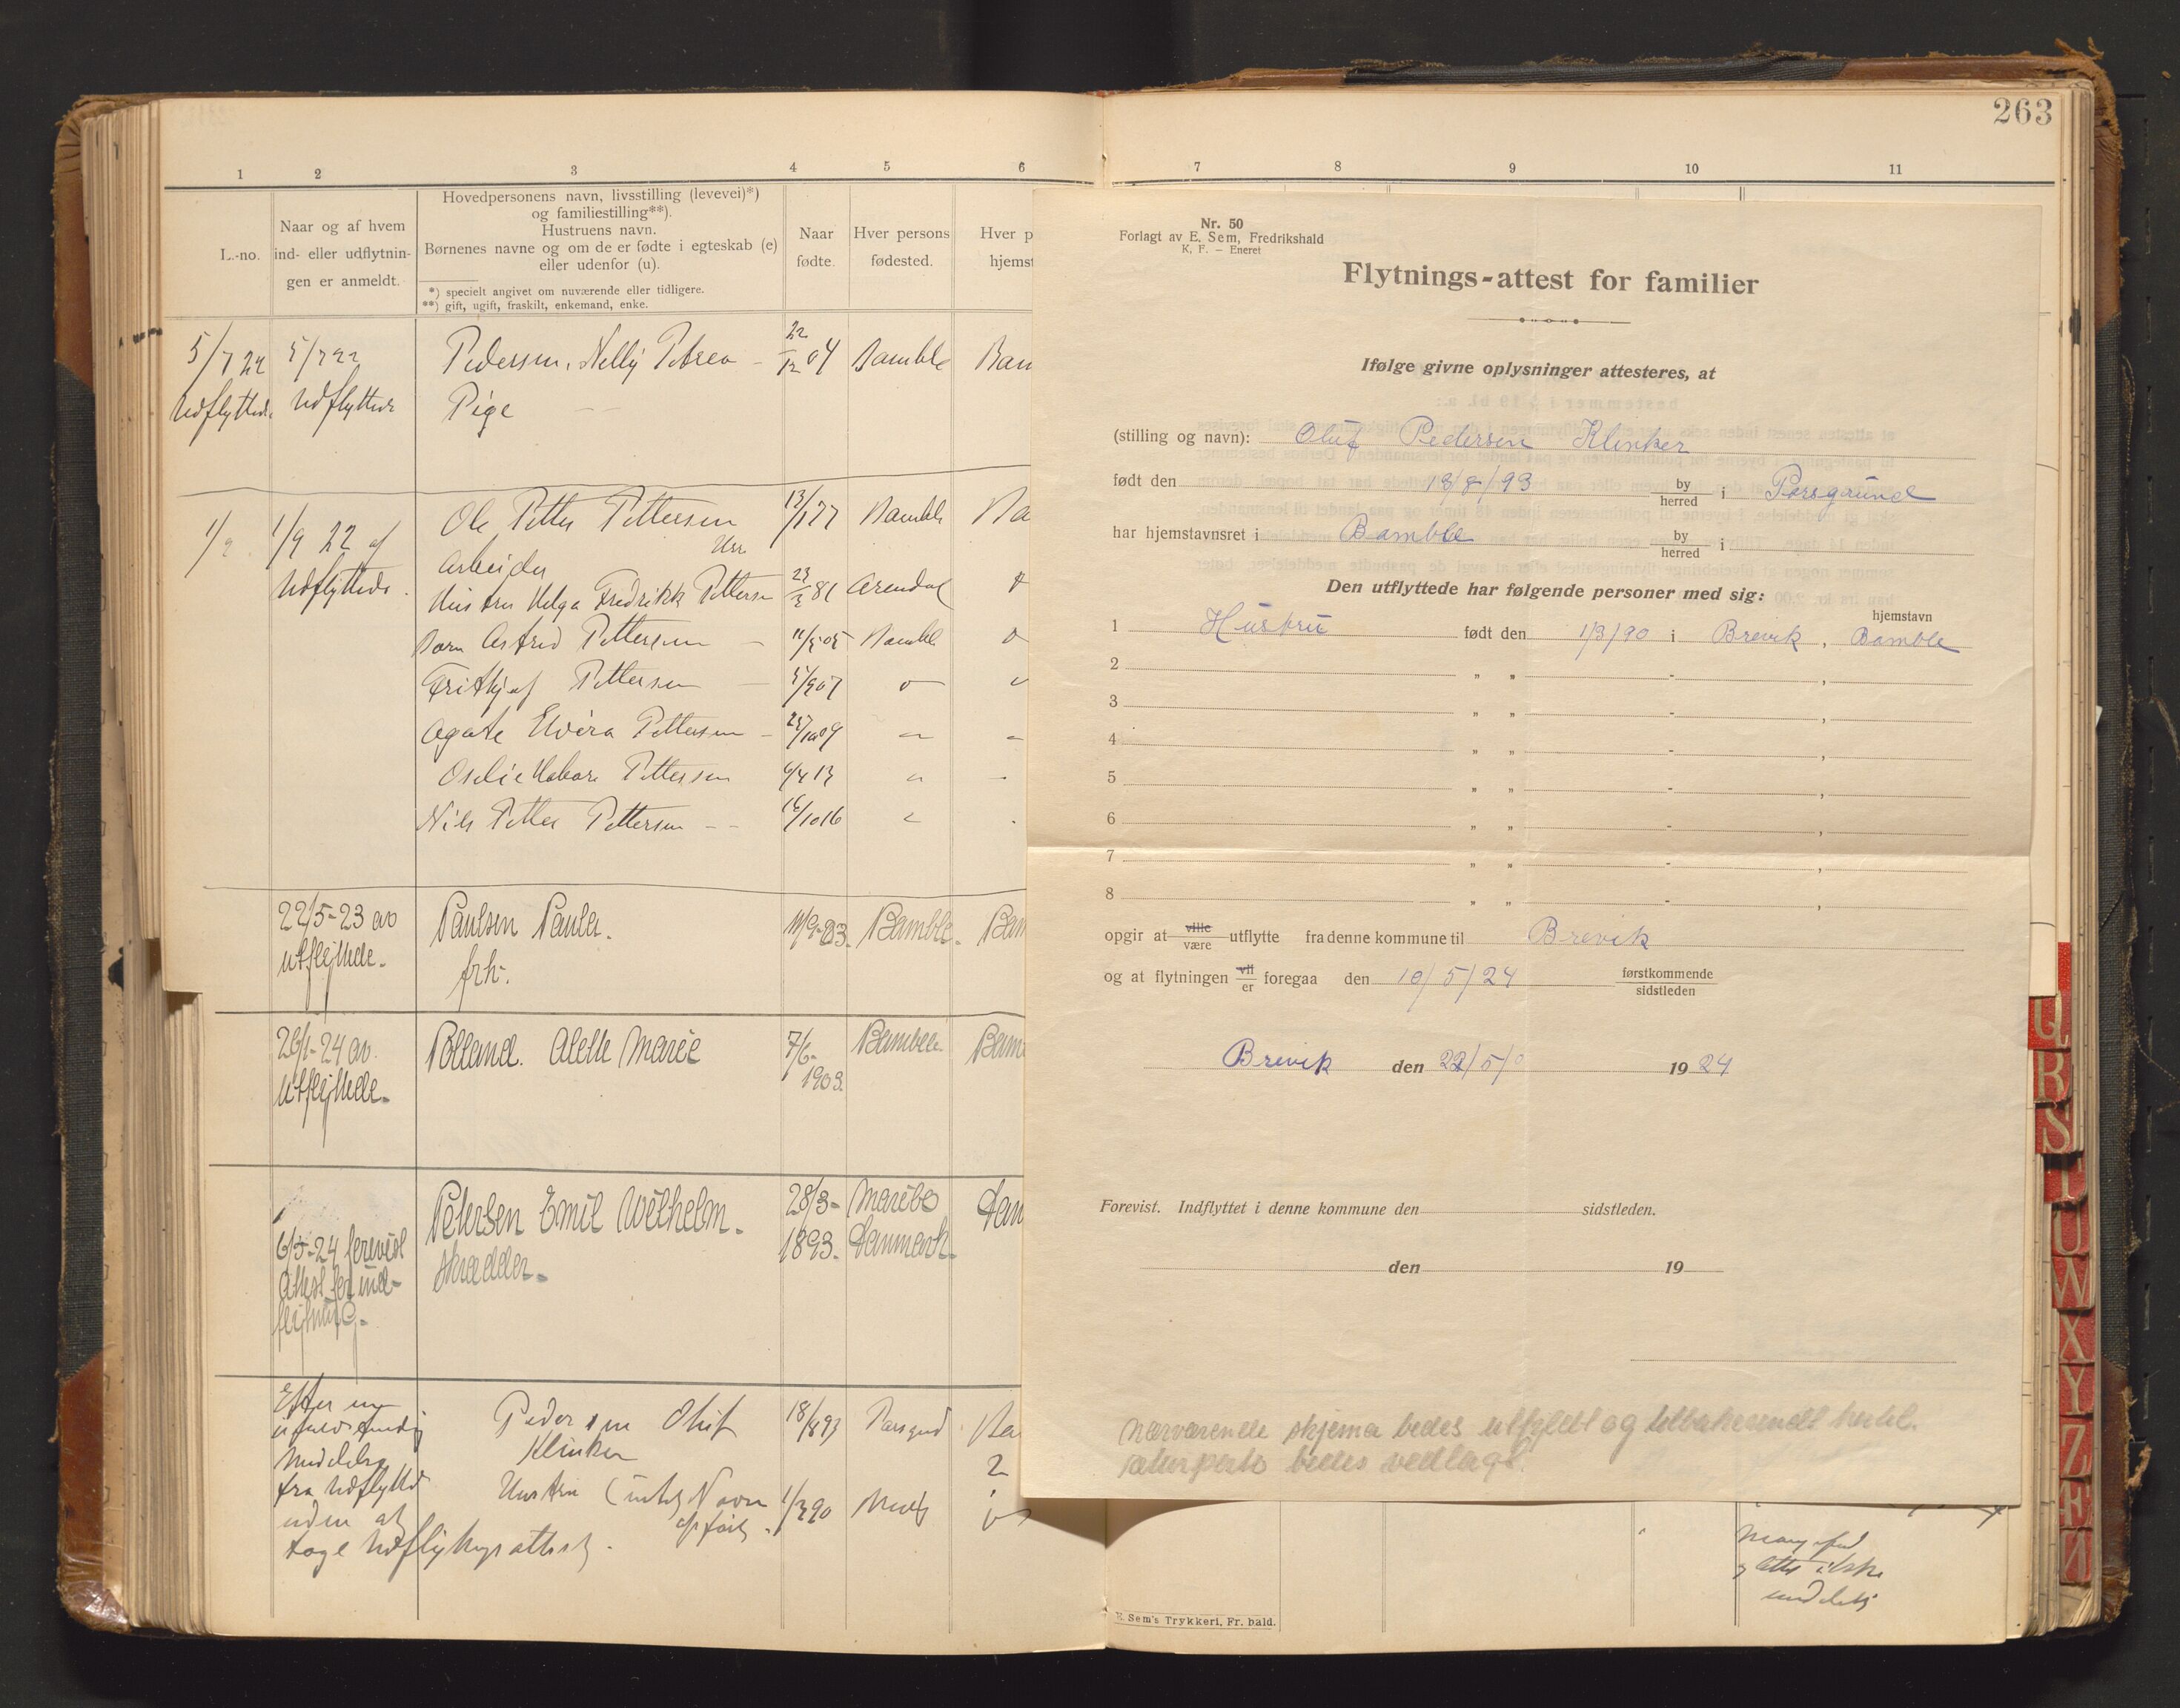 263
1 2 3 4 5 6
L.-no.
Naar og af hvem
ind- eller udflytnin-
gen er anmeldt.
Hovedpersonens navn, livsstilling (levevei)*)
og familiestilling**).
Hustruens navn.
Børnenes navne og om de er fødte i egteskab (e)
eller udenfor (u).
*) specielt angivet om nuværende eller tidligere.
**) gift, ugift, fraskilt, enkemand, enke.
Naar
fødte.
Hver persons
fødested.
Hver p
hjemst
5/7 22 5/7 22 Pedersen, Nelly Petrea - 22/12 04 Bamble Bam
Udflyttede Udflyttede Pige
1/9 1/9 22 af Ole Petter Pettersen 13/1 77 Bamble Ba
Udflyttede. Arbeider
Hustru Helga Fredrikk Pettersen 23/3 81 Arendal
Barn Astrid Pettersen - 11/5 05 Bamble
Frithjof Pettersen - 5/9 07
Agate Elvira Pettersen - 25/10 09
Pettersen 6/4 13
Nils Petter Pettersen - - 16/10 16
22/5-23 av Paulsen Paula. 11/9-03. Bamble. Bam
utflyttede. frk.
26/1-24 av. Rolland. Alette Marie 7/6- Bamble Bam
utflyttede. 1903.
Petersen Emil Wilhelm. 28/3- Maribo Dan
6/5-24 forevist skrædder. 1893. Danmark.
Attest for ind-
flytning.
Efter en Pedersen Oluf 18/8 93 Porsgrud Ba
Klinker
Meddelelse
fra Udflytted Hustru (intet Navn 1/3 90
uden at opført.
tage Udflytningsattest.
7 8 9 10 11
Nr. 50
Forlagt av E. Sem, Fredrikshald
K. F. — Eneret
Flytnings-attest for familier
Ifølge givne oplysninger attesteres, at
(stilling og navn): Oluf Pedersen Klinker
født den 18/8/93 by/herred i Porsgrund
har hjemstavnsret i Bamble by/herred i
Den utflyttede har følgende personer med sig:
hjemstavn
1 Hustru født den 1/3/90 i Brevik, Bamble
2 " " - ,
3 " " - ,
4 " " - ,
5 " " - ,
6 " " - ,
7 " " - ,
8 " " - ,
opgir at ville/være utflytte fra denne kommune til Brevik
og at flytningen vil/er foregaa den 10/5/24 førstkommende/sidstleden
Brevik den 22/5/ 1924
Forevist. Indflyttet i denne kommune den sidstleden.
den 19
Nærværende skjema bedes utfyldt og tilbakesendt hertil.
returporto bedes vedlagt.
E. Sem's Trykkeri, Fr. hald.
Q
R
S
T
U
W
X
Y
Z
Æ
Ø